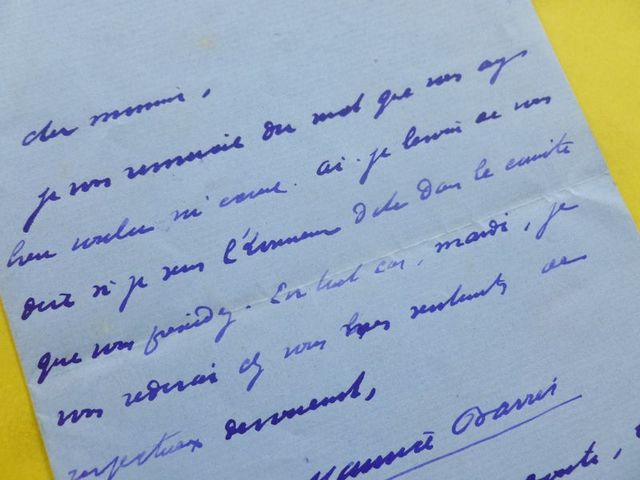 cher monsieur,
je vous remercie du mot que vous ayez
bien voulu m'écrire. ai-je besoin de vous
dire si je sens l'honneur d'etre dans le comité
que vous présidez. En tout cas, mardi, je
vous redirai chez vous mes sentiments de
respectueux dévouement,
Maurice Barrès